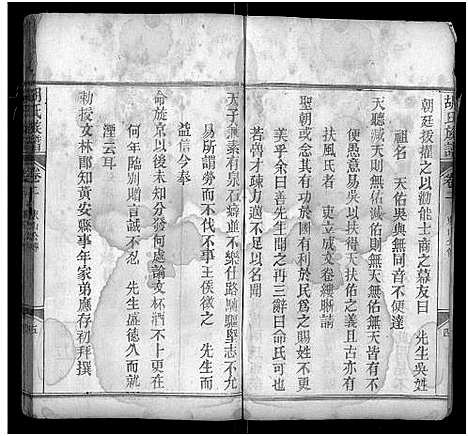 胡氏族譜
卷二
朝廷拔擢之以勸能士商之幕友曰 先生吳姓
祖名 天佑吳與無同音不便達
天聽減天則無佑滅佑則無天皆有不
便愚意易吳以扶得天扶佑之義且古亦有
扶風氏者 吏立成文卷縷聯請
聖朝或念其有功於國有利於民爲之賜姓不更
美乎余曰善先生聞之再三辭曰命氏可也
若膏才疎方適不足以名聞
天子兼素有泉石癖並不樂仕路馳驅堅志不允
易所謂勞而不伐不事王侯徵之 先生而
益信今奉
命旋京以後未知分發何處論文杯酒不卜更在
何年臨別贈言誠不忍 先生盛德久而就
湮云耳
勅授文林郎知黃安縣事年家弟應存初拜撰
胡氏族譜
卷二
五